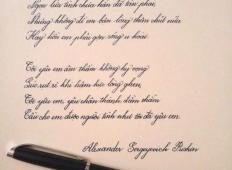 Ngọn lửa tình chưa hẳn đã tàn phai;
Nhưng không để em bận lòng thêm chút nữa
Hay hồn em phải gợn sóng u hoài.
Tôi yêu em âm thầm không hy vọng
Lúc rụt rè khi hậm hực lòng ghen,
Tôi yêu em, yêu chân thành, đằm thắm
Cầu cho em được người tình như tôi đã yêu em.
Alexander Sergeyevich Pushkin